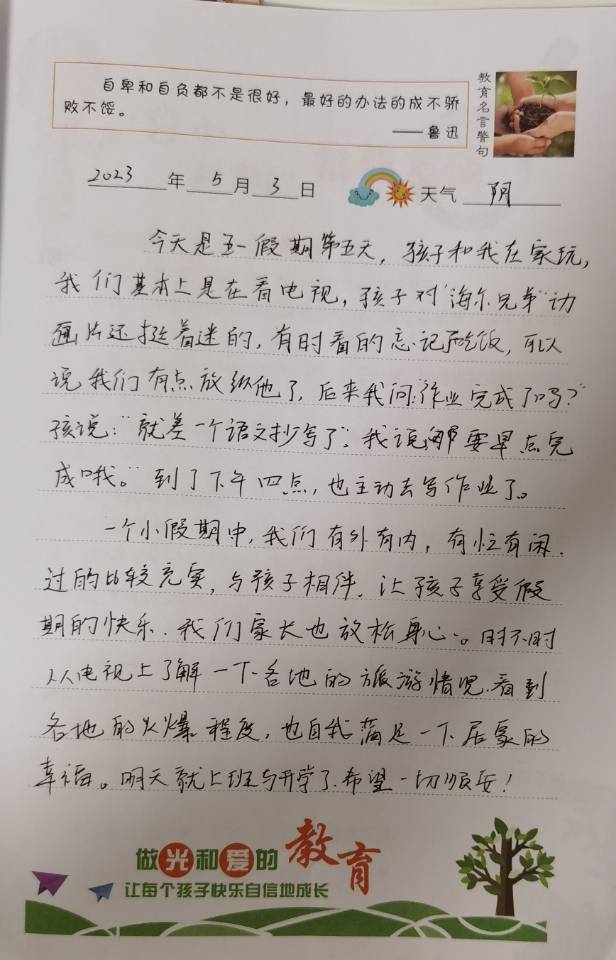 自卑和自负都不是很好，最好的办法的成不骄
败不馁。
——鲁迅
教育名言警句
2023年5月3日 天气 阴
今天是五一假期第五天，孩子和我在家玩，
我们基本上是在看电视，孩子对“海尔兄弟”动
画片还挺着迷的，有时看的忘记吃饭，可以
说我们有点放纵他了，后来我问：“作业完成了吗？”
孩说：“就差一个语文抄写了”。我说“那要早点完
成哦。”到了下午四点，也主动去写作业了。
一个小假期中，我们有外有内，有忙有闲，
过的比较充实，与孩子相伴，让孩子享受假
期的快乐，我们家长也放松身心。时不时
从电视上了解一下各地的旅游情况，看到
各地的火爆程度，也自我满足一下居家的
幸福。明天就上班与开学了，希望一切顺安！
做光和爱的教育
让每个孩子快乐自信地成长